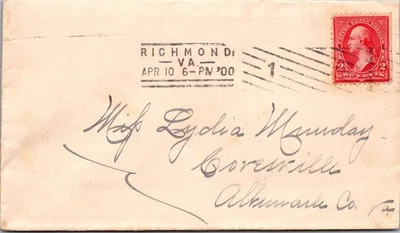 RICHMOND,
VA.
APR 10 6-PM '00
1
2 2
TWO CENTS
Miss Lydia Munday
Covesville
Albemarle Co.